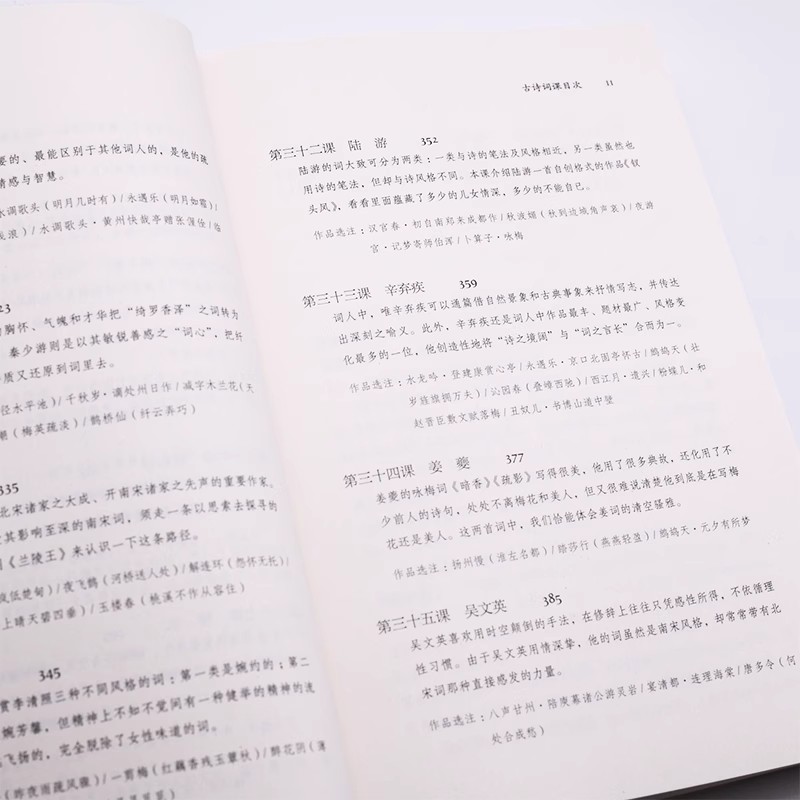 要的、最能区别于其他词人的，是他的疏
情感与智慧。
水调歌头（明月几时有）/永遇乐（明月如霜）/
浪）/水调歌头·黄州快哉亭赠张偓佺/临
23
胸怀、气魄和才华把“绮罗香泽”之词转为
秦少游则是以其敏锐善感之“词心”，把纤
质又还原到词里去。
径水平池）/千秋岁·谪处州日作/减字木兰花（天
潮（梅英疏淡）/鹊桥仙（纤云弄巧）
335
北宋诸家之大成、开南宋诸家之先声的重要作家。
其影响至深的南宋词，须走一条以思索去探寻的
《兰陵王》来认识一下这条路径。
低楚甸）/夜飞鹊（河桥送人处）/解连环（怨怀无托）/
上晴天碧四垂）/玉楼春（桃溪不作从容住）
345
赏李清照三种不同风格的词：第一类是婉约的；第二
婉芳馨，但精神上不知不觉间有一种健举的精神的流
飞扬的，完全脱除了女性味道的词。
（昨夜雨疏风骤）/一剪梅（红藕香残玉簟秋）/醉花阴（薄
古诗词课目次 11
第三十二课 陆 游 352
陆游的词大致可分为两类：一类与诗的笔法及风格相近，另一类虽然也
用诗的笔法，但却与诗风格不同。本课介绍陆游一首自创格式的作品《钗
头凤》，看看里面蕴藏了多少的儿女情深，多少的不能自已。
作品选注：汉宫春·初自南郑来成都作/秋波媚（秋到边城角声哀）/夜游
宫·记梦寄师伯浑/卜算子·咏梅
第三十三课 辛弃疾 359
词人中，唯辛弃疾可以通篇借自然景象和古典事象来抒情写志，并传达
出深刻之喻义。此外，辛弃疾还是词人中作品最丰、题材最广、风格变
化最多的一位，他创造性地将“诗之境阔”与“词之言长”合而为一。
作品选注：水龙吟·登建康赏心亭/永遇乐·京口北固亭怀古/鹧鸪天（壮
岁旌旗拥万夫）/沁园春（叠嶂西驰）/西江月·遣兴/粉蝶儿·和
赵晋臣敷文赋落梅/丑奴儿·书博山道中壁
第三十四课 姜 夔 377
姜夔的咏梅词《暗香》《疏影》写得很美，他用了很多典故，还化用了不
少前人的诗句，处处不离梅花和美人，但又很难说清楚他到底是在写梅
花还是美人。这两首词中，我们恰能体会姜词的清空骚雅。
作品选注：扬州慢（淮左名都）/踏莎行（燕燕轻盈）/鹧鸪天·元夕有所梦
第三十五课 吴文英 385
吴文英喜欢用时空颠倒的手法，在修辞上往往只凭感性所得，不依循理
性习惯。由于吴文英用情深挚，他的词虽然是南宋风格，却常常带有北
宋词那种直接感发的力量。
作品选注：八声甘州·陪庾幕诸公游灵岩/宴清都·连理海棠/唐多令（何
处合成愁）